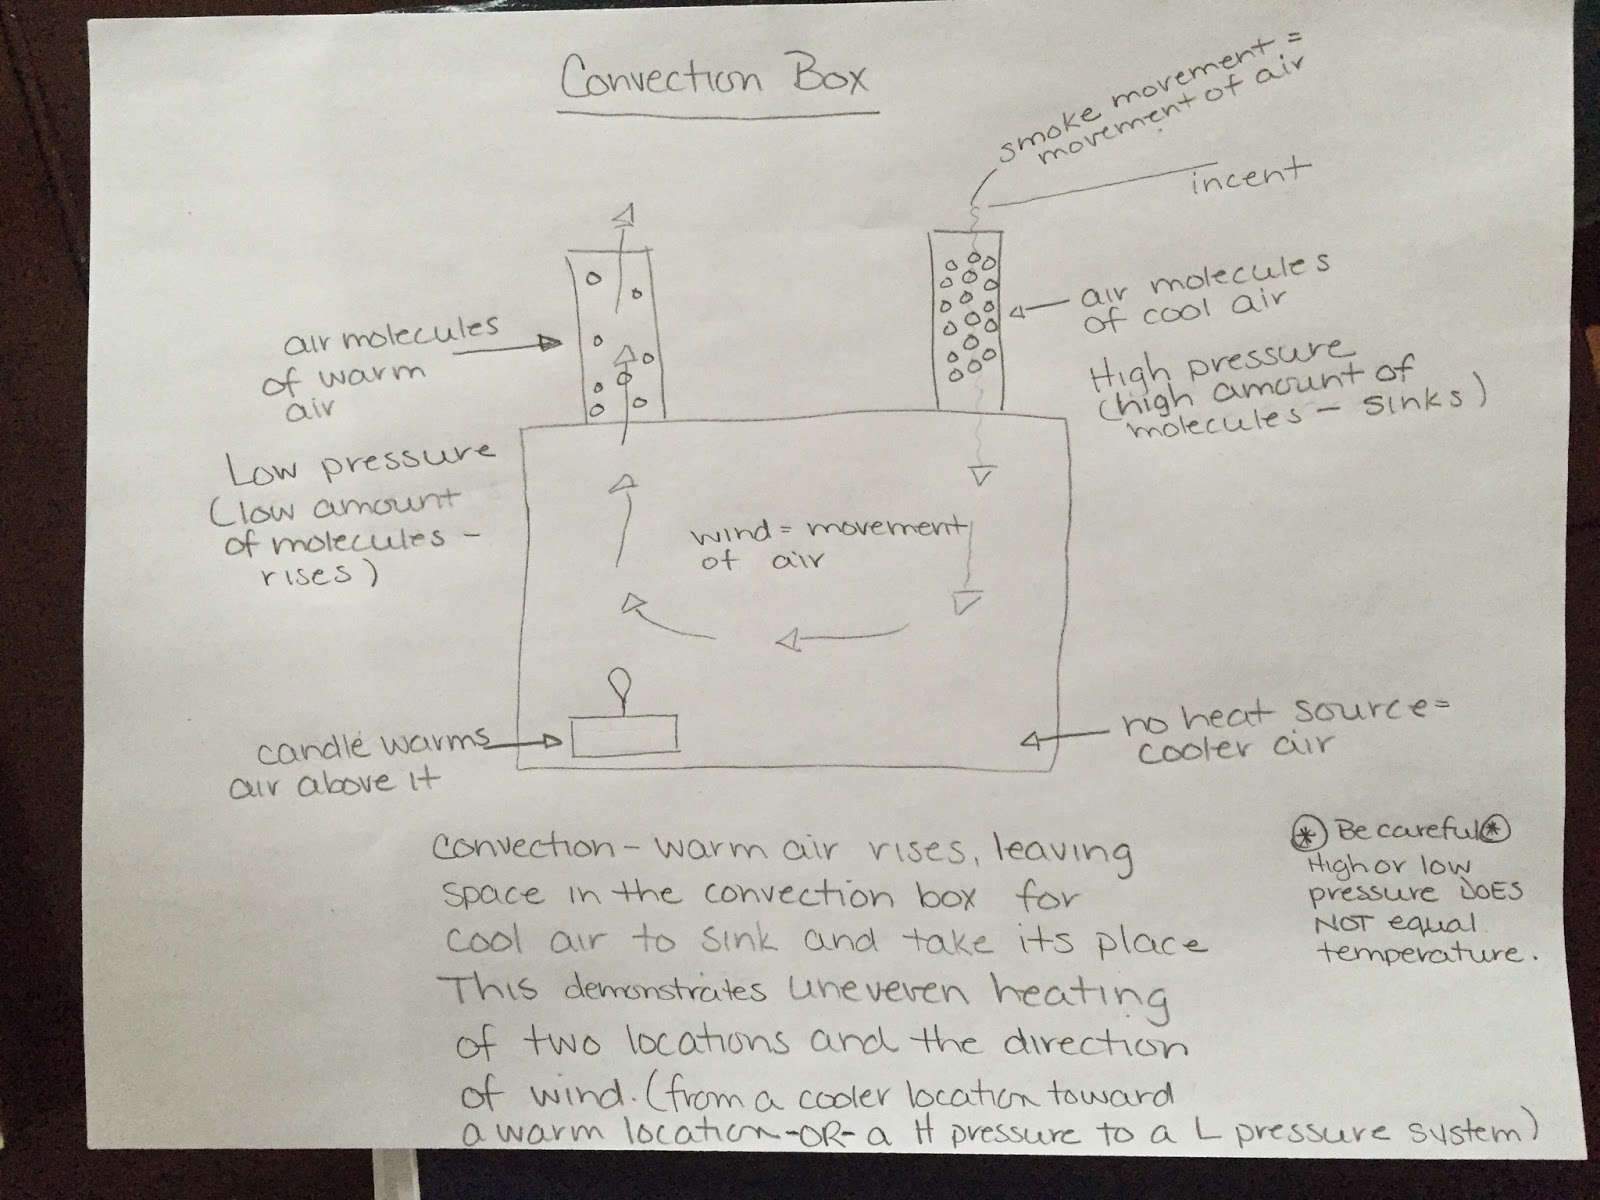 Convection Box
smoke movement =
movement of air
incent
air molecules
of cool air
High pressure
(high amount of
molecules - sinks)
air molecules
of warm
air
Low pressure
(low amount
of molecules -
rises)
wind = movement
of air
candle warms
air above it
no heat source =
cooler air
Convection - warm air rises, leaving
space in the convection box for
cool air to sink and take its place
This demonstrates uneven heating
of two locations and the direction
of wind. (from a cooler location toward
a warm location -OR- a H pressure to a L pressure system)
* Be careful *
High or low
pressure DOES
NOT equal
temperature.